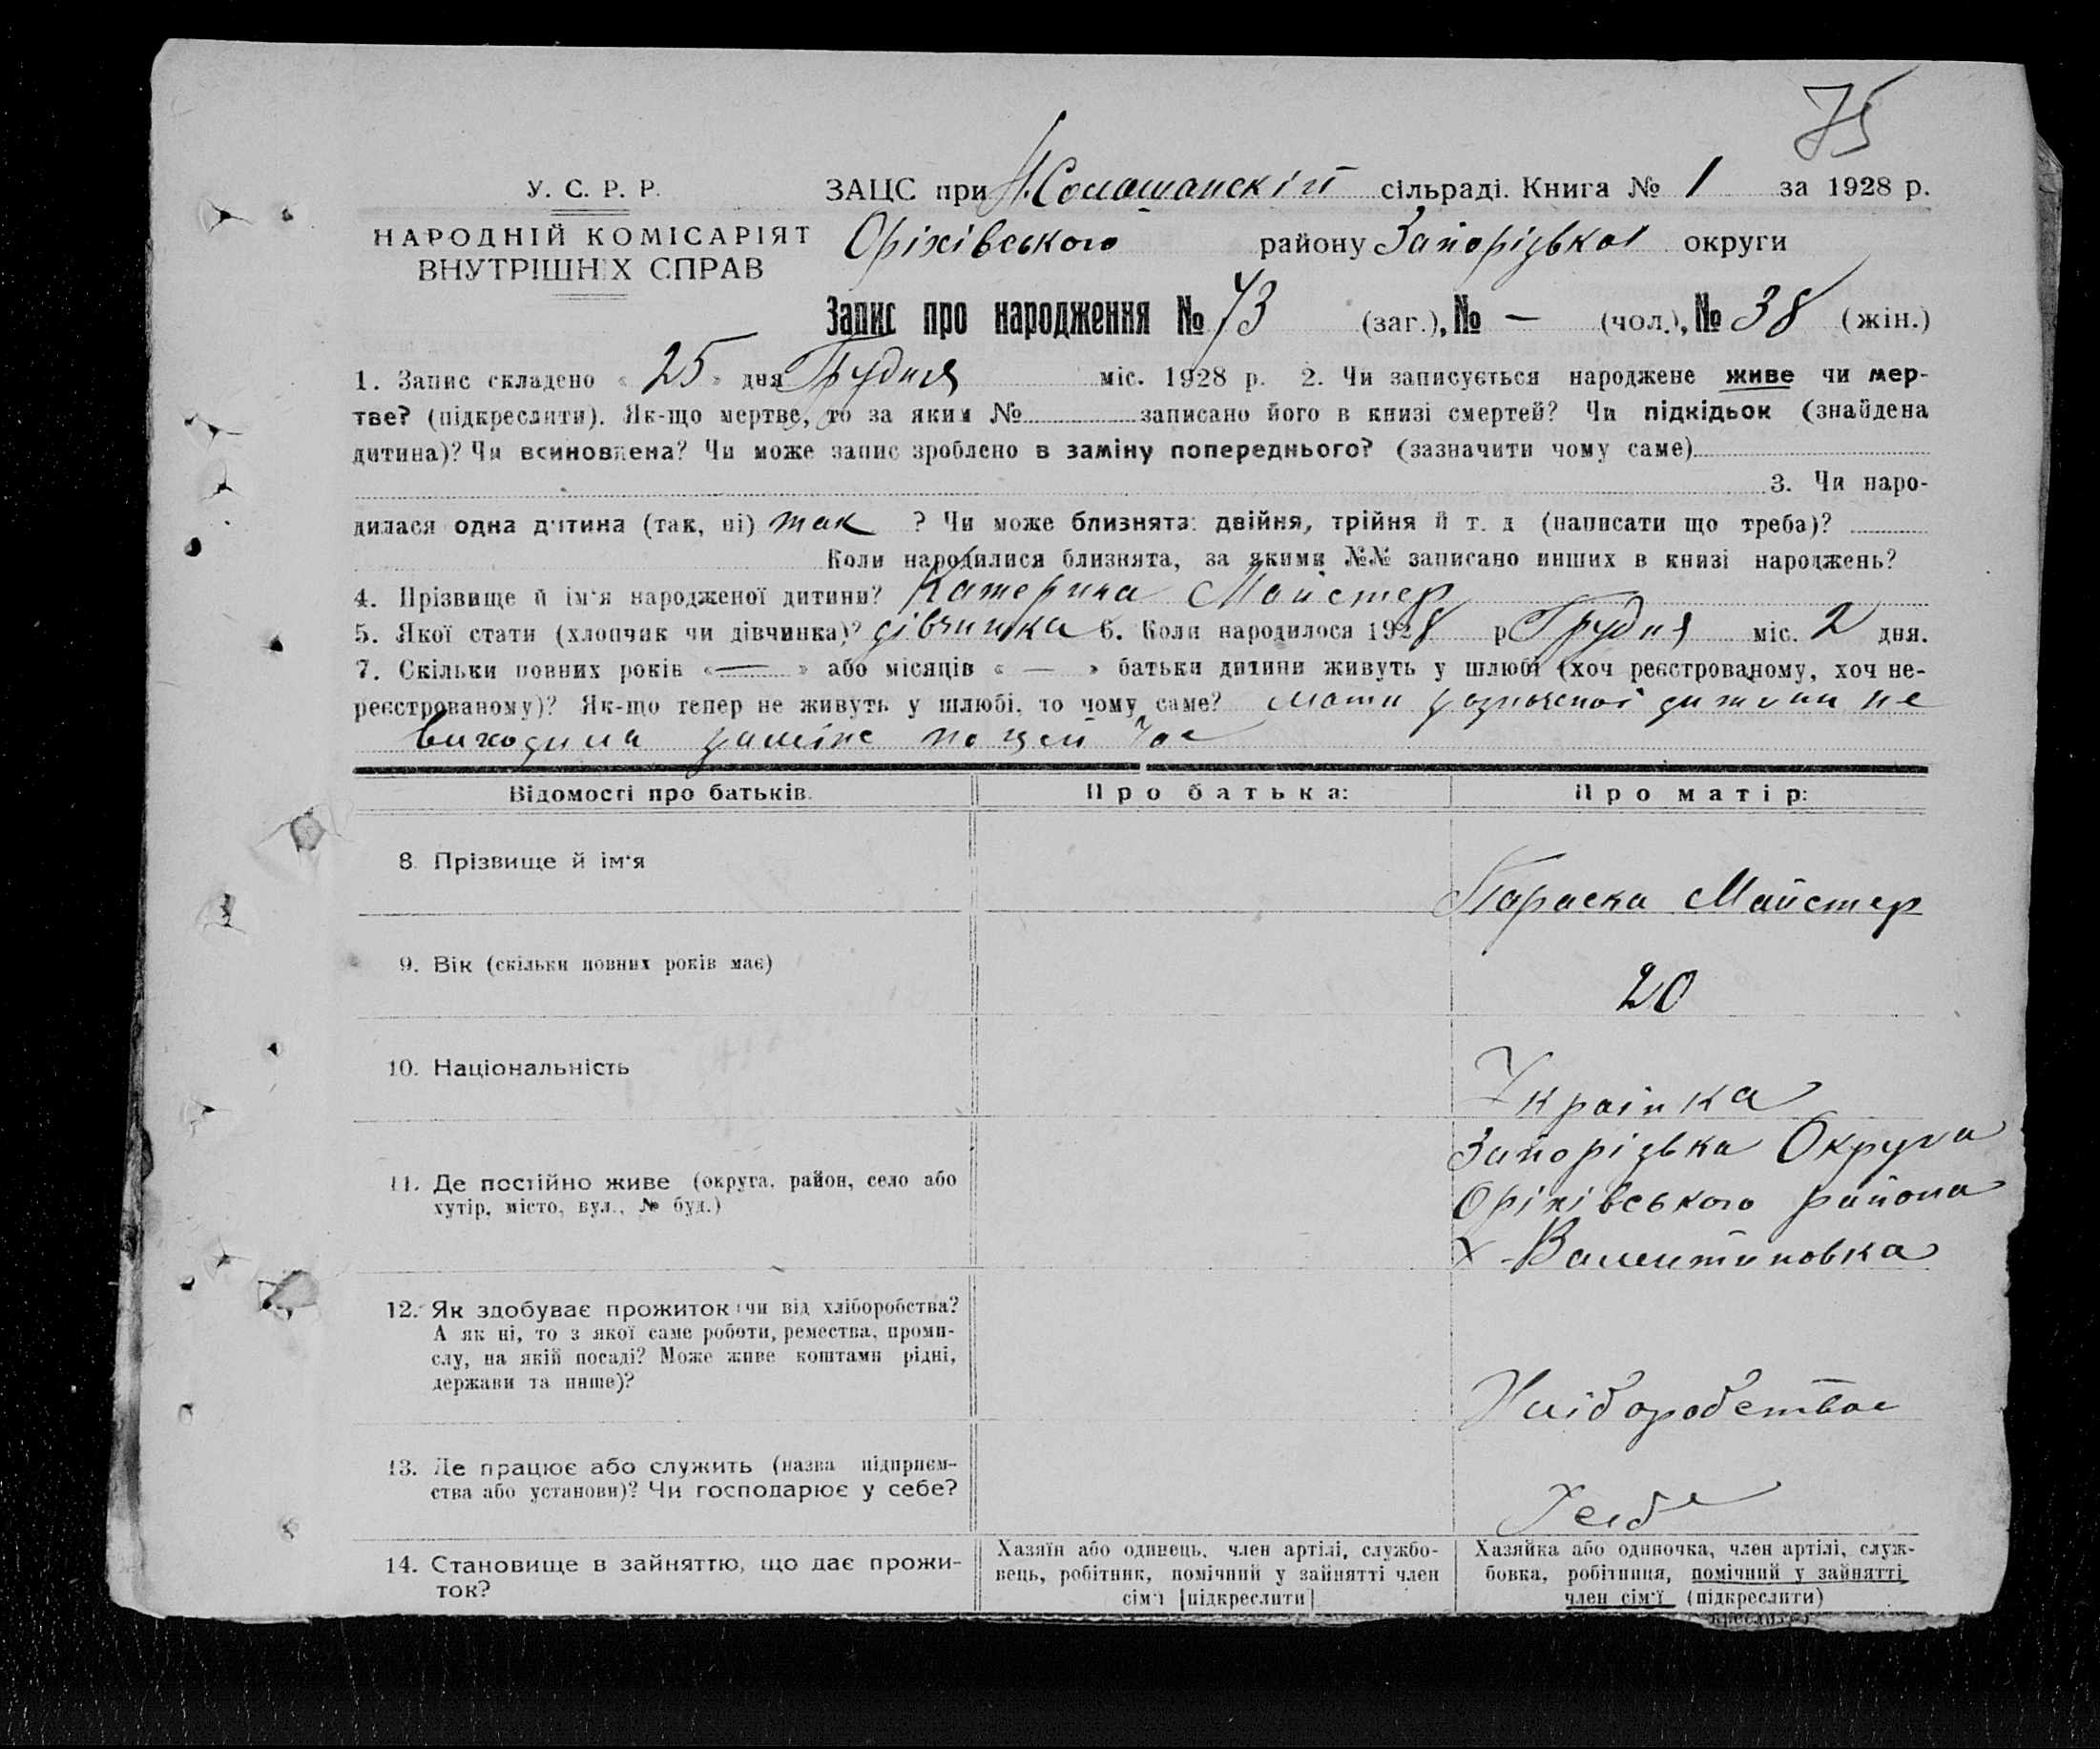 75
У. С. Р. Р.
НАРОДНІЙ КОМІСАРІЯТ
ВНУТРІШНІХ СПРАВ
ЗАЦС при сільраді. Книга № 1 за 1928 р.
Оріхівського району Запорізької округи
Запис про народження № 73 (заг.), № — (чол.), № 38 (жін.)
1. Запис складено « 25 » дня Грудня міс. 1928 р. 2. Чи записується народжене живе чи мер-
тве? (підкреслити). Як-що мертве, то за яким № записано його в книзі смертей? Чи підкідьок (знайдена
дитина)? Чи всиновлена? Чи може запис зроблено в заміну попереднього? (зазначити чому саме)
3. Чи наро-
дилася одна дитина (так, ні) так ? Чи може близнята: двійня, трійня й т. д (написати що треба)?
Коли народилися близнята, за якими №№ записано инших в книзі народжень?
4. Прізвище й ім'я народженої дитини? Катерина Майстер
5. Якої стати (хлопчик чи дівчинка)? дівчинка 6. Коли народилося 1928 р Грудня міс. 2 дня.
7. Скільки повних років «—» або місяців « — » батьки дитини живуть у шлюбі (хоч реєстрованому, хоч не-
реєстрованому)? Як-що тепер не живуть у шлюбі, то чому саме? мати дитини не
виходила заміж по цей час
Відомості про батьків. Про батька: Про матір:
8. Прізвище й ім'я
Параска Майстер
9. Вік (скільки повних років має)
20
10. Національність
Українка
11. Де постійно живе (округа, район, село або
хутір, місто, вул., № буд.)
Запорізька Округа
Оріхівського района
х. Валентиновка
12. Як здобуває прожиток: чи від хліборобства?
А як ні, то з якої саме роботи, ремества, проми-
слу, на якій посаді? Може живе коштами рідні,
держави та инше)?
Хліборобства
13. Де працює або служить (назва підприєм-
ства або установи)? Чи господарює у себе?
У себе
14. Становище в зайняттю, що дає прожи-
ток?
Хазяїн або одинець, член артілі, службо-
вець, робітник, помічний у зайнятті член
сім'ї [підкреслити]
Хазяйка або одиночка, член артілі, служ-
бовка, робітниця, помічний у зайнятті
член сім'ї (підкреслити)